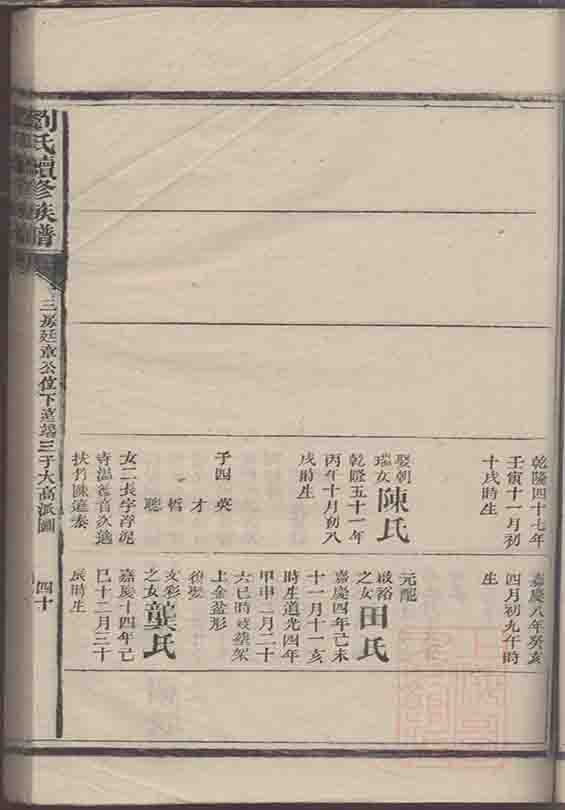 乾隆四十七年
壬寅十一月初
十戌時生
娶朝
瑞女
陳氏
乾隆五十一年
丙午十月初八
戌時生
子四 英
才
哲
聰
女二長字浮泥
扶竹陳進泰
嘉慶八年癸亥
四月初九午時
生
元配
啟裕
之女
田氏
嘉慶四年己未
十一月十一亥
時生道光四年
甲申二月二十
六巳時歿葬架
上金盆形
續娶
文彩
之女
龔氏
嘉慶十四年己
巳十二月三十
辰時生
劉氏續修族譜
三房廷章公位下進端三子大高派圖
四十